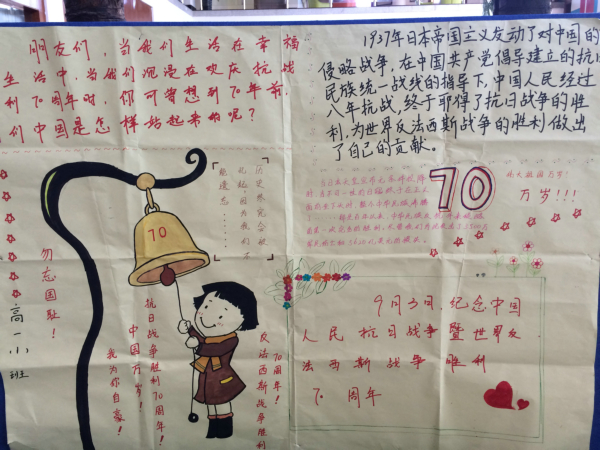 朋友们，当我们生活在幸福
生活中，当我们沉浸在欢庆抗战
利70周年时，你可曾想到70年前，
们中国是怎样站起来的呢？
1937年日本帝国主义发动了对中国的
侵略战争，在中国共产党倡导建立的抗日
民族统一战线的指导下，中国人民经过
八年抗战，终于取得了抗日战争的胜
利，为世界反法西斯战争的胜利做出
了自己的贡献。
70
伟大祖国万岁！
万岁！！！
历史终究会被
铭记因为我们不
能遗忘
70
勿忘国耻！
高一小班
抗日战争胜利70周年！
中国万岁！
我为你自豪！
70周年！
反法西斯战争胜利
9月3日，纪念中国
人民抗日战争暨世界反
法西斯战争胜利
70周年